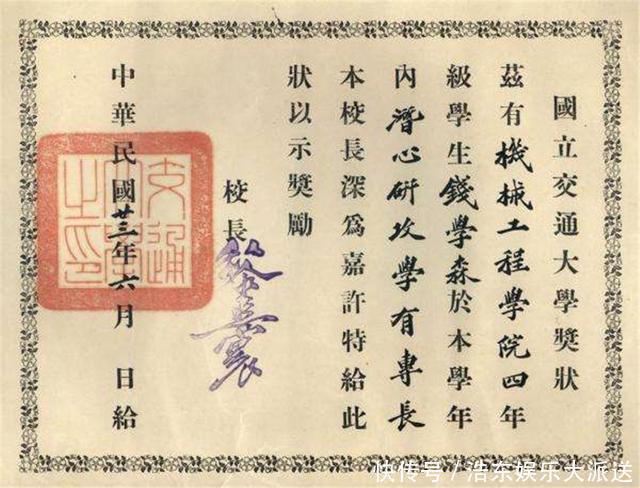 國立交通大學獎狀
茲有機械工程學院四年
級學生錢學森於本學年
內潛心研攻學有專長
本校長深爲嘉許特給此
狀以示獎勵
校長黎照寰
中華民國廿三年六月 日給
交通
大學
之印
快传号／浩东娱乐大派送